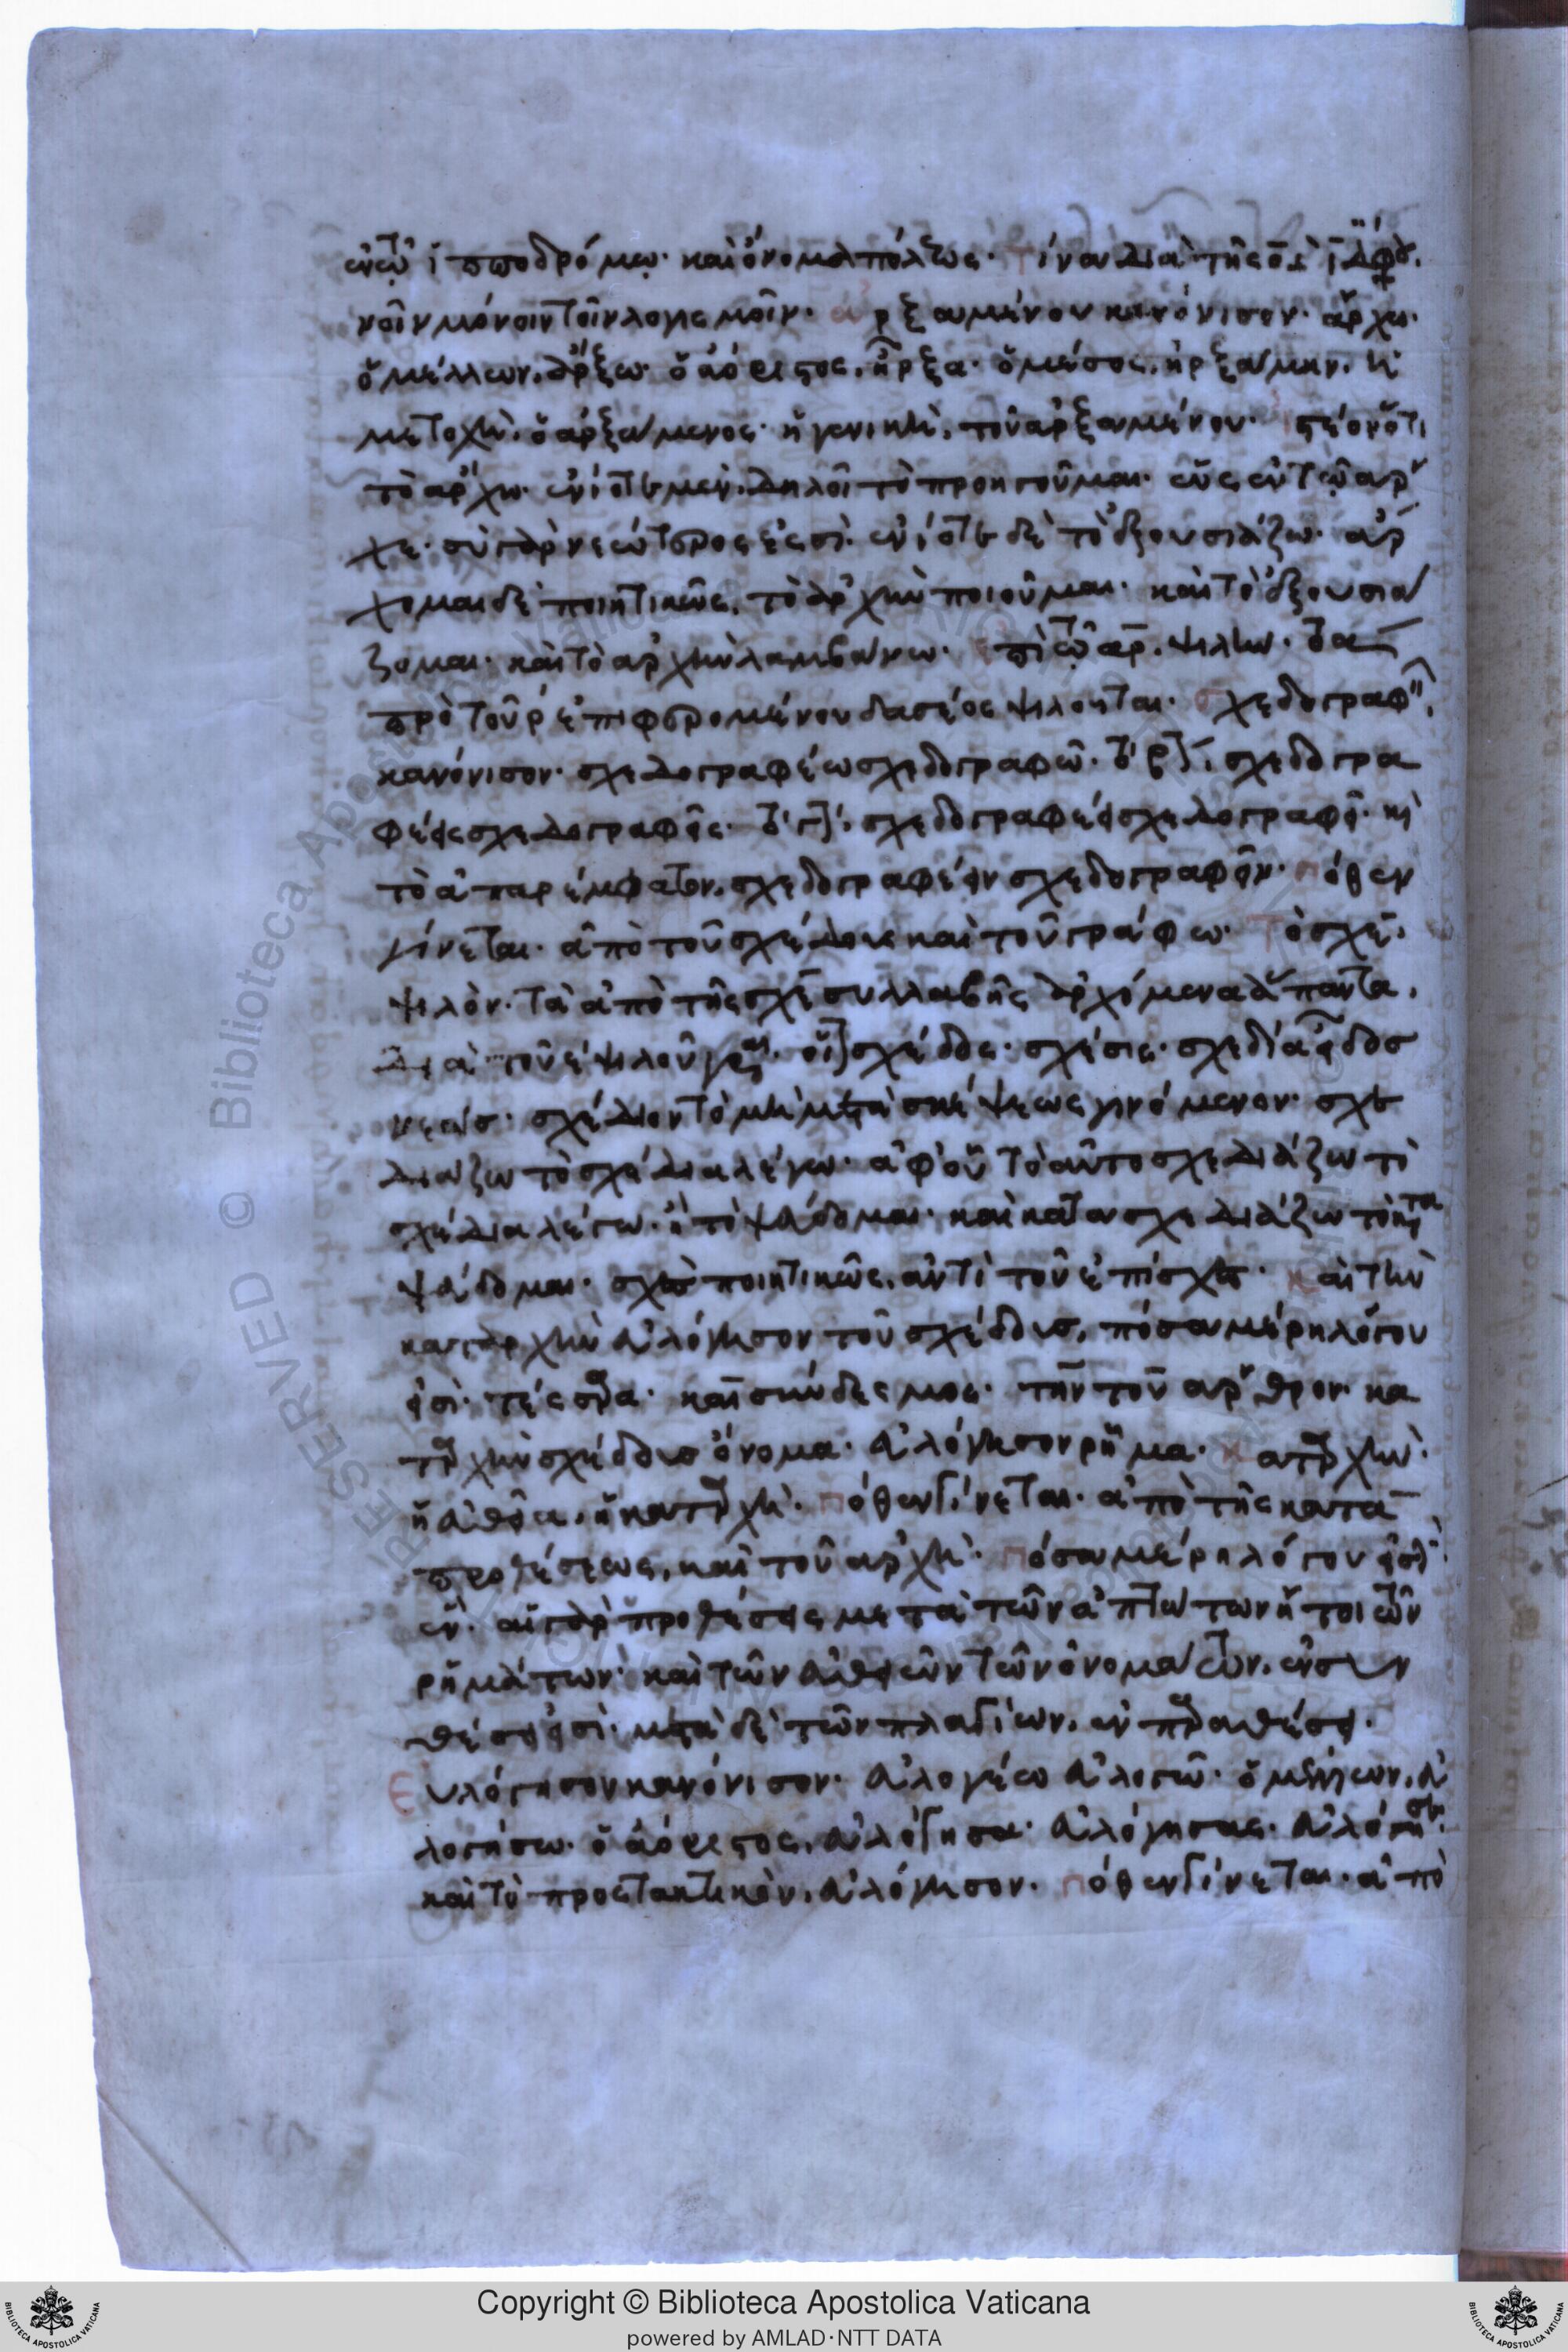 ἐν τῷ ἱπποδρόμῳ· καὶ ὄνομα πόλεως· τίνα διὰ τῆς
νοῖν μόνοιν τοῖν λογισμοῖν· ἀρξαμένου κανόνισον· ἄρχω·
ὁ μέλλων, ἄρξω· ὁ ἀόριστος, ἦρξα· ὁ μέσος, ἠρξάμην· ἡ
μετοχὴ, ὁ ἀρξάμενος· ἡ γενικὴ, τοῦ ἀρξαμένου· ἰστέον ὅτι
τὸ ἄρχω· ἐνίοτε μὲν, δηλοῖ τὸ προηγοῦμαι· ὡς ἐν τῷ ἄρ
χε· σὺ γὰρ νεώτερος ἐσσί· ἐνίοτε δὲ τὸ ἐξουσιάζω· ἄρ
χομαι δὲ ποιητικῶς, τὸ ἀρχὴν ποιοῦμαι· καὶ τὸ ἐξουσιά
ζομαι· καὶ τὸ ἀρχὴν λαμβάνω· ἐπὶ τῷ αρ, ψιλὴν· τὰ
πρὸ τοῦ ρ ἐπιφερομένου δασέος ψιλοῦται· σχεδογραφεῖν,
κανόνισον· σχεδογραφέω σχεδογραφῶ· τὸ βʹ, σχεδογρα
φέεις σχεδογραφεῖς· τὸ γʹ, σχεδογραφέει σχεδογραφεῖ· καὶ
τὸ ἀπαρέμφατον, σχεδογραφέειν σχεδογραφεῖν· πόθεν
γίνεται· ἀπὸ τοῦ σχέδους καὶ τοῦ γράφω· τὸ σχε,
ψιλόν· τὰ ἀπὸ τῆς σχε συλλαβῆς ἀρχόμενα ἅπαντα,
διὰ τοῦ ε ψιλοῦ γράφεται· οἷον σχέδος· σχέσις· σχεδία
σχέδιον τὸ μὴ μετὰ σκέψεως γινόμενον· σχε
διάζω τὸ σχέδια λέγω· ἀφ' οὗ τὸ αὐτοσχεδιάζω τὸ
σχέδια λέγω· ἢ τὸ ψεύδομαι· καὶ κατασχεδιάζω τὸ κατα
ψεύδομαι· σχὲ ποιητικῶς, ἀντὶ τοῦ ἐπίσχε· καὶ τὴν
καταρχὴν εὐλόγησον τοῦ σχέδους, πόσα μέρη λόγου
εἰσί· τέσσαρα· καὶ σύνδεσμος· τὴν τοῦ ἄρθρον· κα
ταρχὴν σχέδους ὄνομα· εὐλόγησον ῥῆμα· καταρχὴν·
ἡ εὐθεῖα, ἡ καταρχή· πόθεν γίνεται· ἀπὸ τῆς κατα
προθέσεως, καὶ τοῦ ἀρχή· πόσα μέρη λόγου εἰσί·
ἕν· αἱ γὰρ προθέσεις μετὰ τῶν ἀπτώτων ἤτοι τῶν
ῥημάτων· καὶ τῶν εὐθειῶν τῶν ὀνομάτων, ἐν συν
θέσει εἰσί· μετὰ δὲ τῶν πλαγίων, ἐν παραθέσει·
Εὐλόγησον κανόνισον· εὐλογέω εὐλογῶ· ὁ μέλλων, εὐ
λογήσω· ὁ ἀόριστος, εὐλόγησα· εὐλόγησας· εὐλόγησε·
καὶ τὸ προστακτικόν, εὐλόγησον· πόθεν γίνεται· ἀπὸ
Copyright © Biblioteca Apostolica Vaticana
powered by AMLAD·NTT DATA